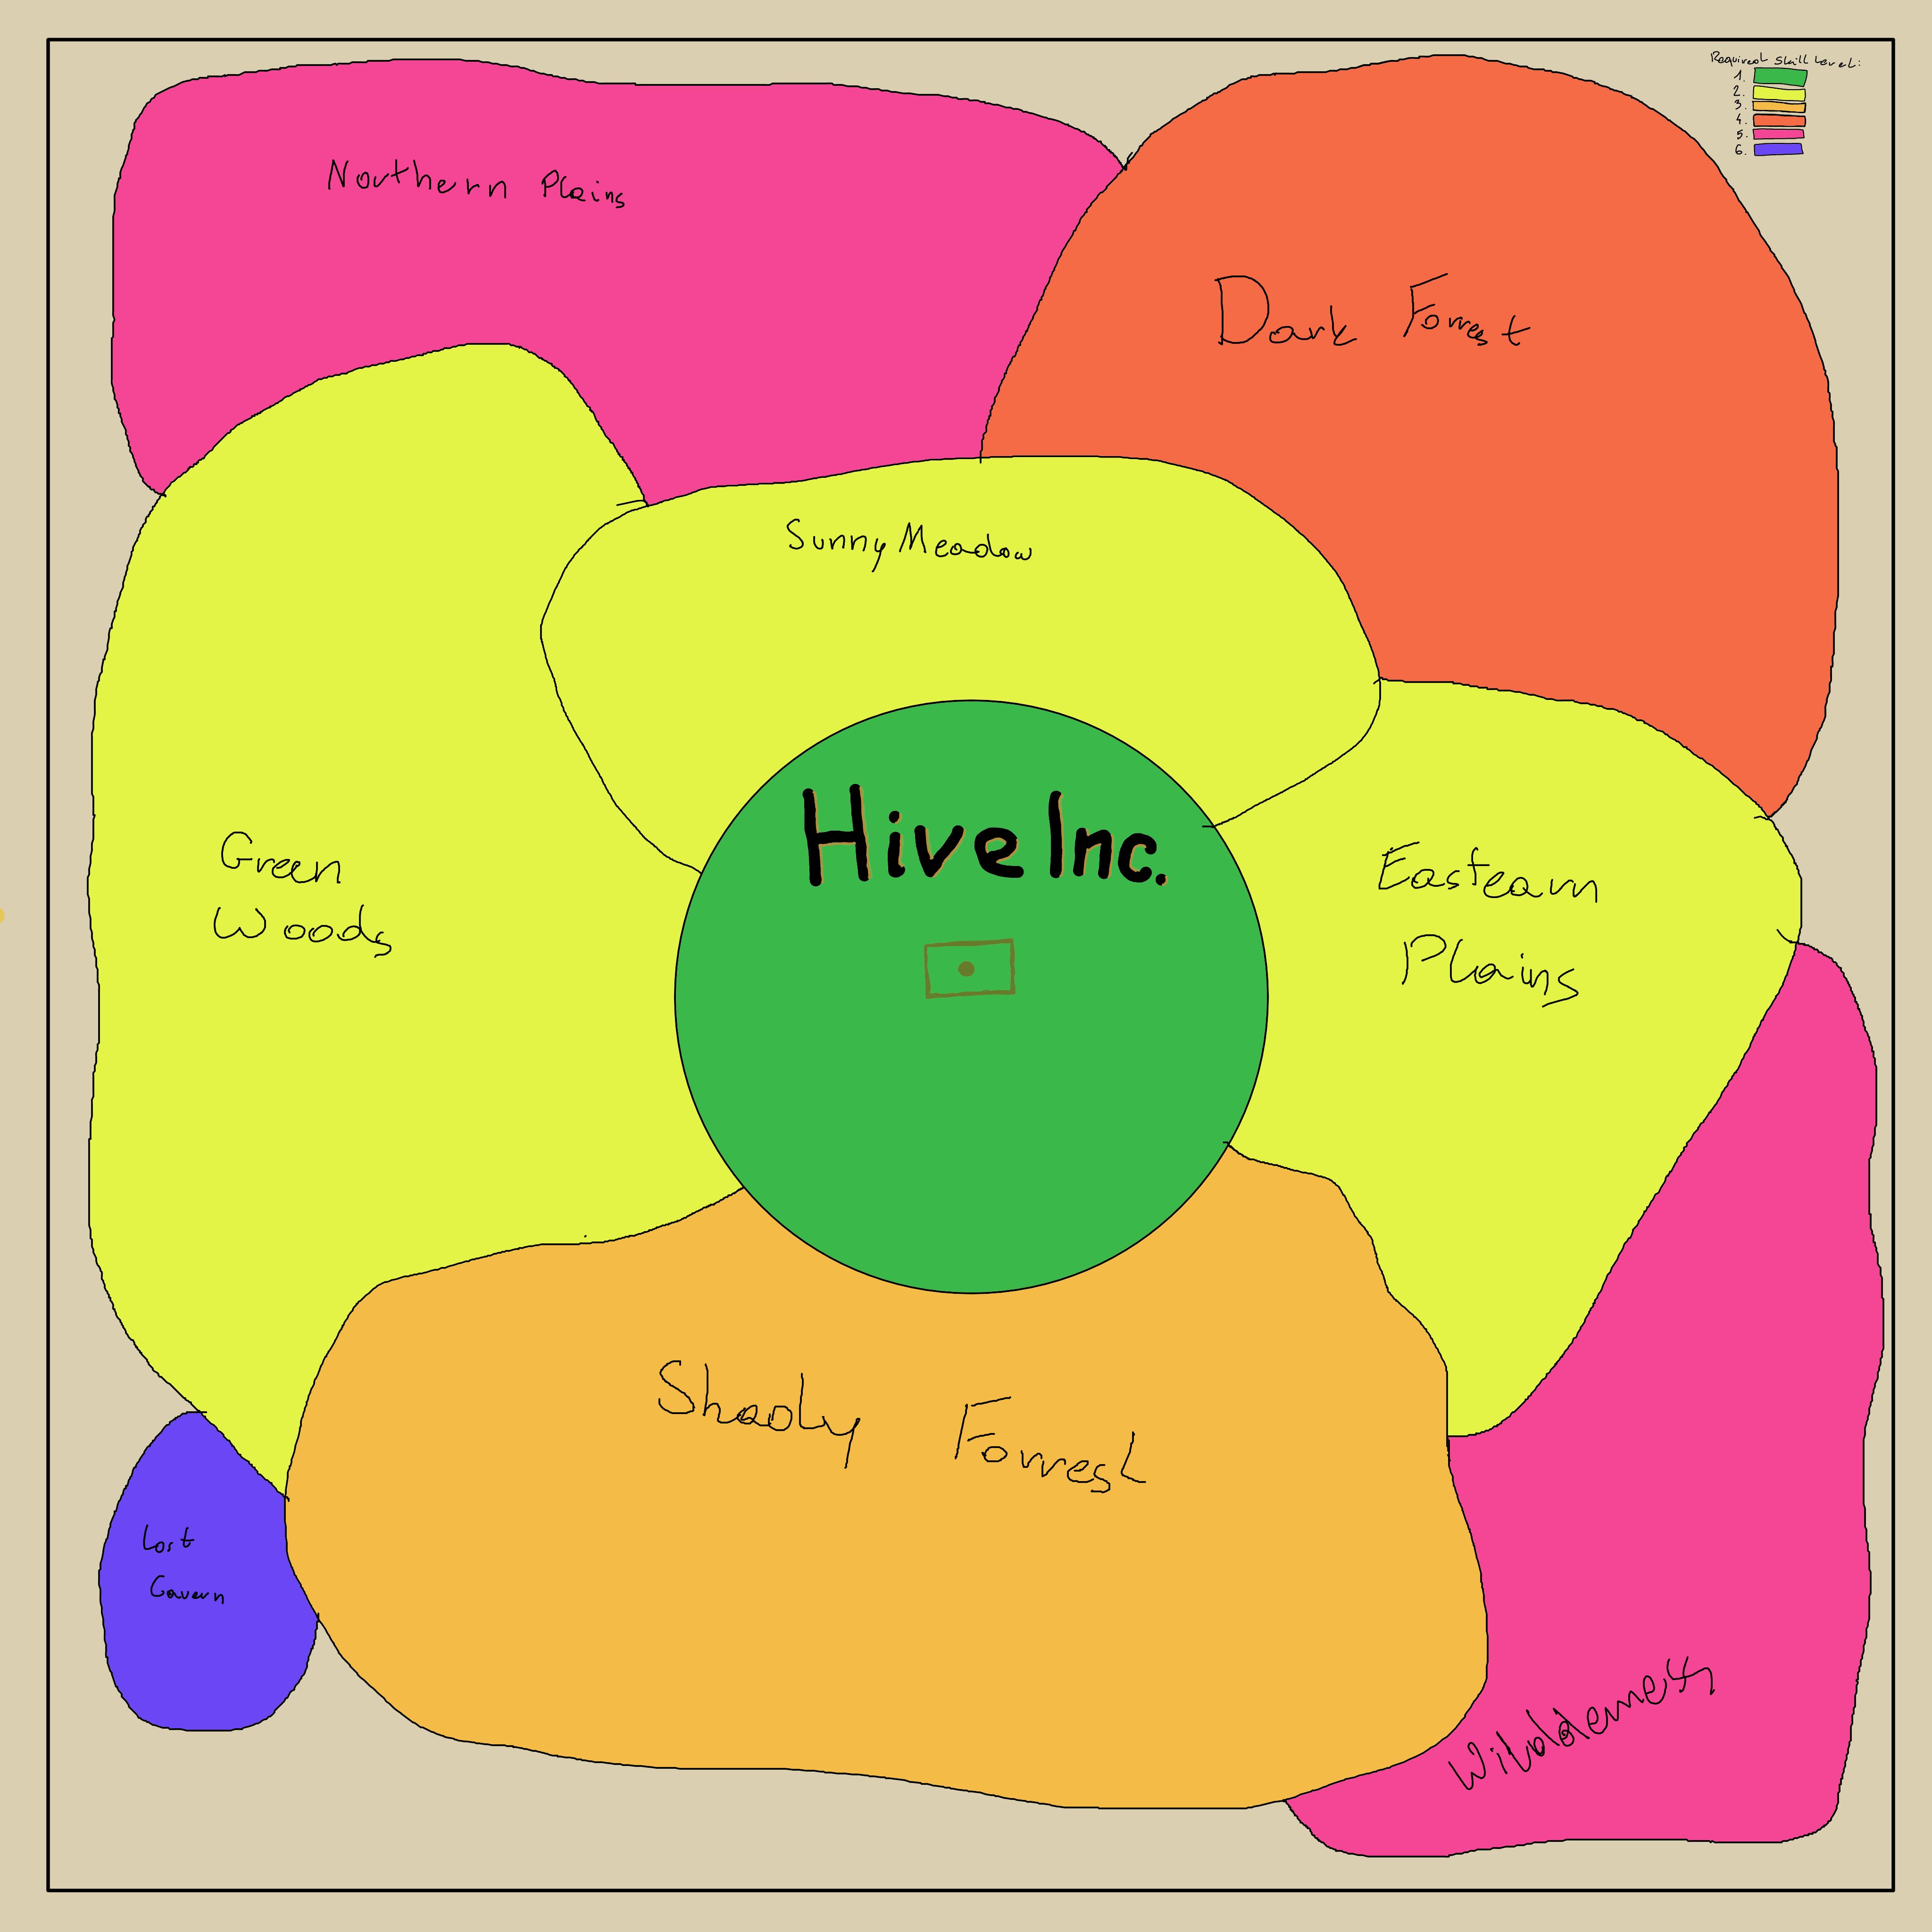 Required Skill Level:
1.
2.
3.
4.
5.
6.
Northern Plains
Dark Forrest
Sunny Meadow
Hive Inc.
Green
Woods
Eastearn
Plains
Shady Forrest
Lost
Cavern
Wilderness